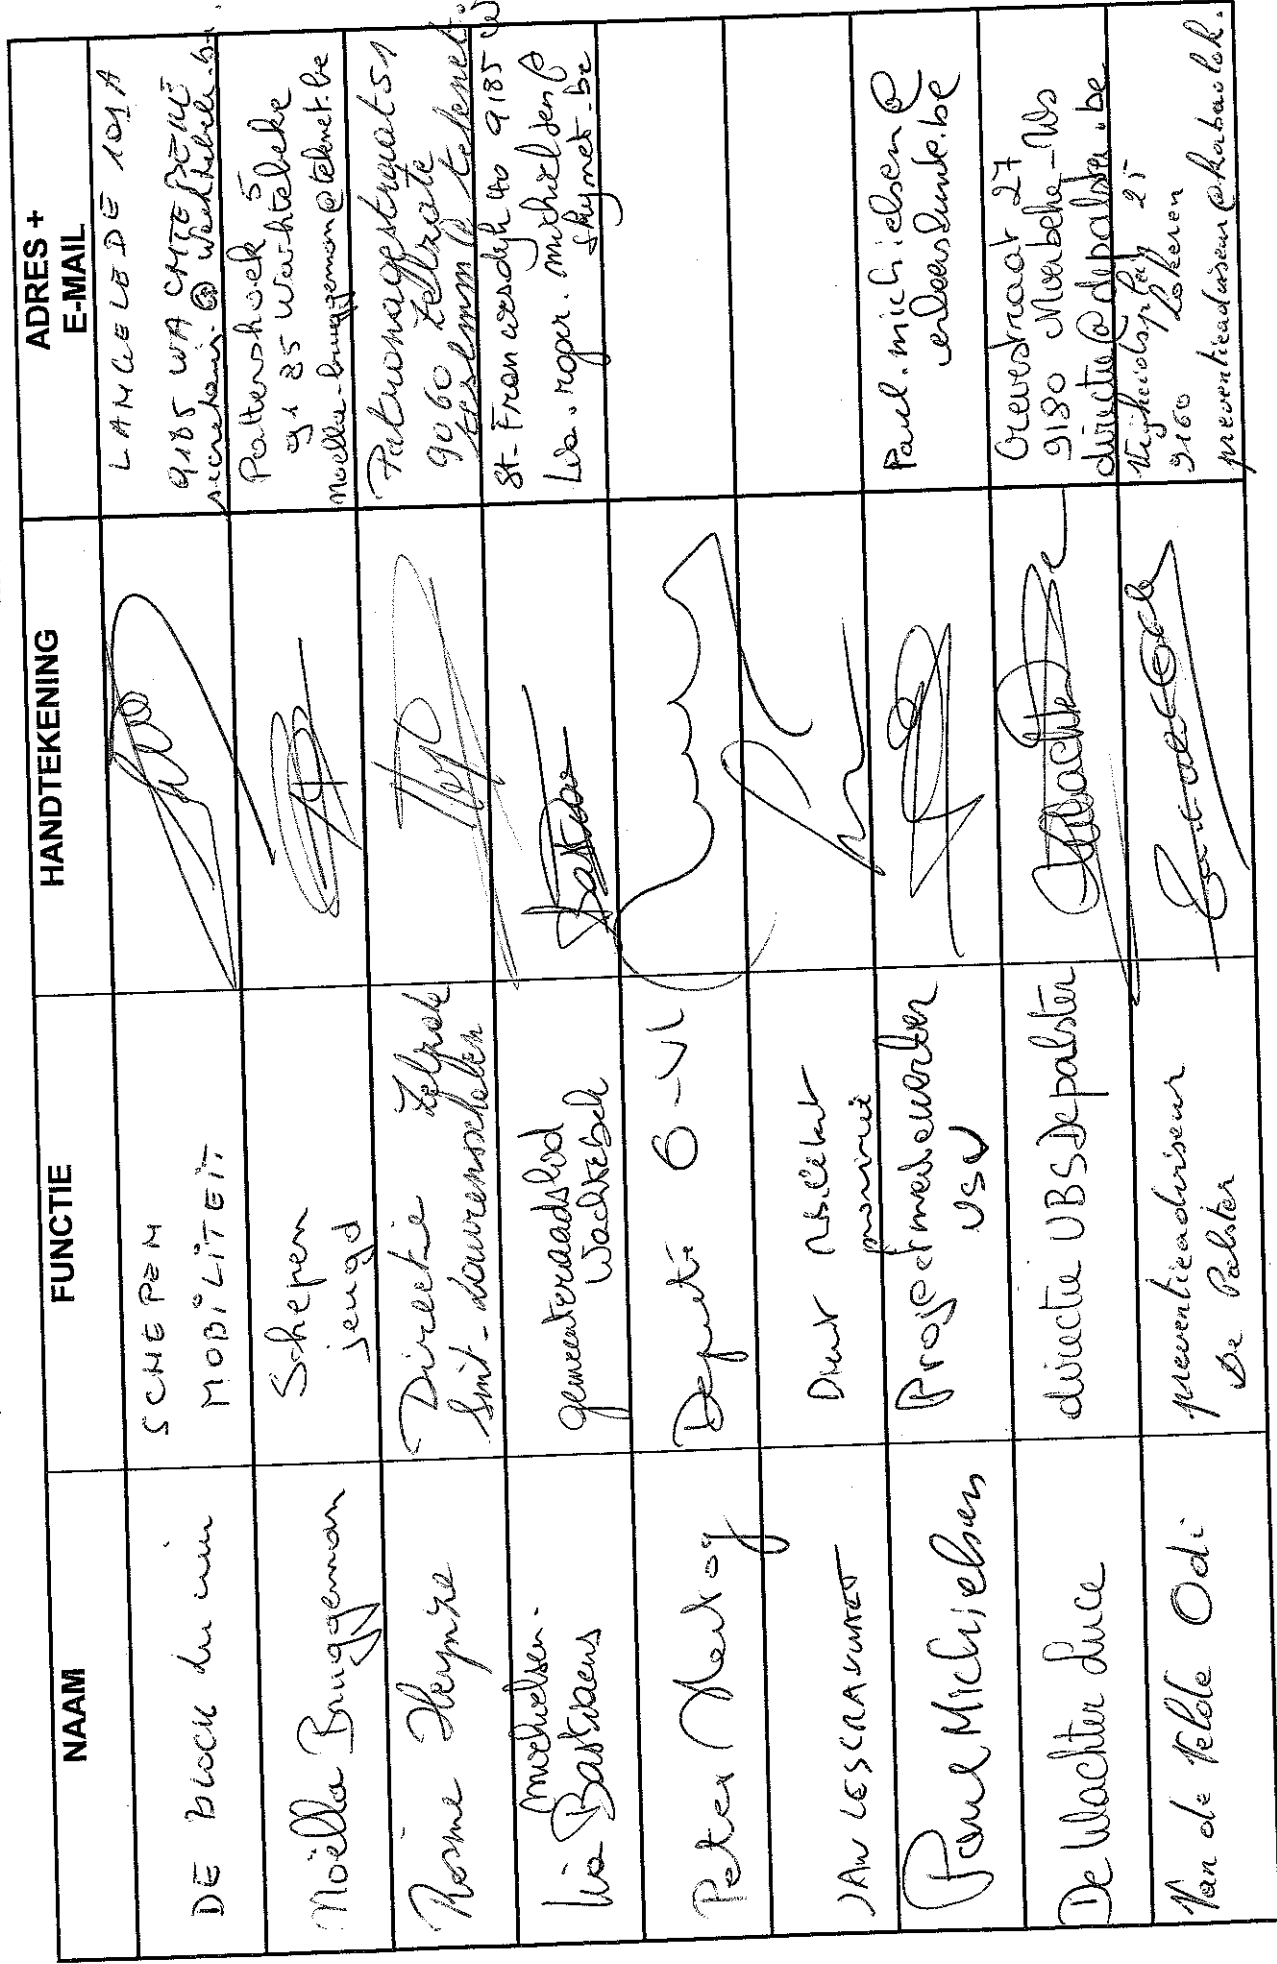 NAAM
FUNCTIE
HANDTEKENING
ADRES +
E-MAIL
DE BLOCK
SCHEPEN
MOBILITEIT
LANGELEDE 101A
9185 WACHTEBEKE
Noëlla Bruggeman
Schepen
jeugd
Pottershoek 5
9185 Wachtebeke
noella.bruggeman@telenet.be
Heynze
Directie Zelzate
Sint-Laurensscholen
Patronagestraat 51
9060 Zelzate
Michielsen-
Lia Bastiaens
gemeenteraadslid
Wachtebeke
St-Franciesdijk 40 9185 W
Lia.roger.michielsen@
skynet.be
Peter Hertog
Deputé O-Vl
JAN LESCRAUWAET
Paul Michielsen
Projectmedewerker
VSV
Paul.michielsen@
verkeerskunde.be
De Wachter Luce
directie VBS De palster
9180 Moerbeke-Ws
directie@depalster.be
Van de Velde Odi
preventieadviseur
De Palster
25
9160 Lokeren